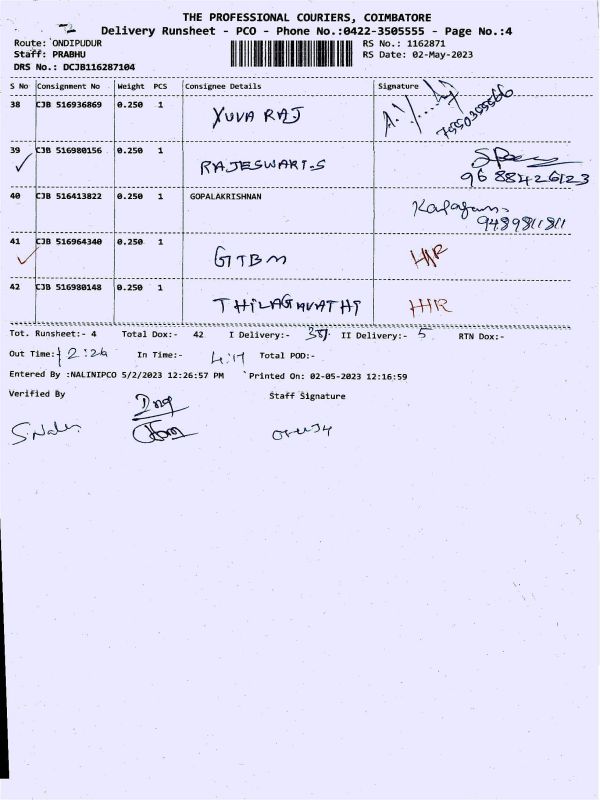 THE PROFESSIONAL COURIERS, COIMBATORE
Delivery Runsheet - PCO - Phone No.:0422-3505555 - Page No.:4
Route: ONDIPUDUR RS No.: 1162871
Staff: PRABHU RS Date: 02-May-2023
DRS No.: DCJB116287104
S No Consignment No Weight PCS Consignee Details Signature
38 CJB 516936869 0.250 1 YUVA RAJ
39 CJB 516980156 0.250 1 RAJESWARI.S
9688426123
40 CJB 516413822 0.250 1 GOPALAKRISHNAN
9489811811
41 CJB 516964340 0.250 1
42 CJB 516980148 0.250 1 THILAGAVATHI
Tot. Runsheet:- 4 Total Dox:- 42 I Delivery:- II Delivery:- 5 RTN Dox:-
Out Time:- 12:26 In Time:- 4:17 Total POD:-
Entered By :NALINIPCO 5/2/2023 12:26:57 PM Printed On: 02-05-2023 12:16:59
Verified By Staff Signature